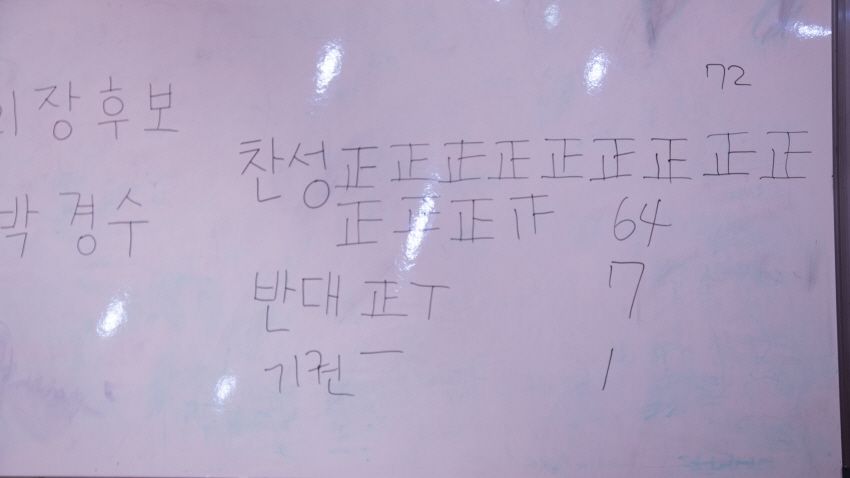 72
장후보
찬성 正正正正正正正正正
박경수
正正正𤴓 64
반대 正丅 7
기권 一 1